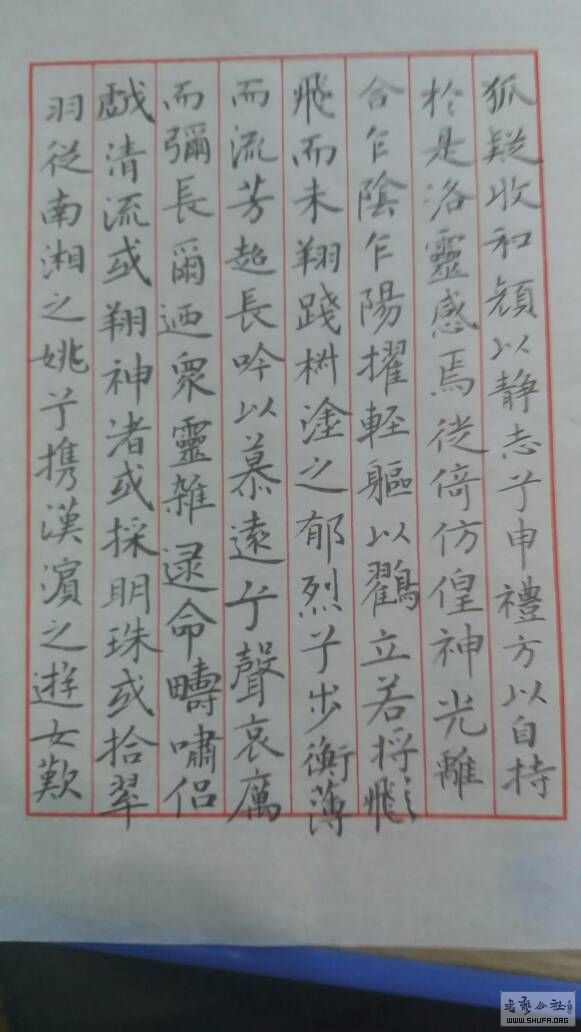 狐疑收和顔以静志兮申禮方以自持
於是洛靈感焉徙倚仿偟神光離
合乍陰乍陽擢軽軀以鸖立若将飛
飛而未翔踐椒塗之郁烈兮步衡薄
而流芳超長吟以慕遠兮聲哀厲
而彌長爾迺眾靈雜遝命疇嘯侣
戯清流或翔神渚或採明珠或拾翠
羽從南湘之姚兮携漢濱之遊女歎
书艺公社
WWW.SHUFA.ORG